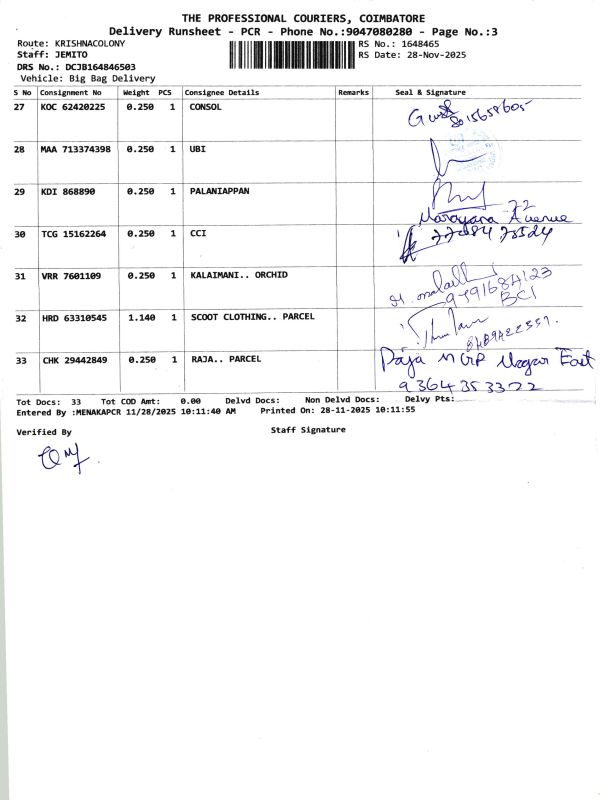 THE PROFESSIONAL COURIERS, COIMBATORE
Delivery Runsheet - PCR - Phone No.:9047080280 - Page No.:3
Route: KRISHNACOLONY RS No.: 1648465
Staff: JEMITO RS Date: 28-Nov-2025
DRS No.: DCJB164846503
Vehicle: Big Bag Delivery
S No Consignment No Weight PCS Consignee Details Remarks Seal & Signature
27 KOC 62420225 0.250 1 CONSOL
28 MAA 713374398 0.250 1 UBI
29 KDI 868890 0.250 1 PALANIAPPAN
72
Narayana Avenue
30 TCG 15162264 0.250 1 CCI
31 VRR 7601109 0.250 1 KALAIMANI.. ORCHID
BCI
32 HRD 63310545 1.140 1 SCOOT CLOTHING.. PARCEL
33 CHK 29442849 0.250 1 RAJA.. PARCEL Raja Nagar East
9364353322
Tot Docs: 33 Tot COD Amt: 0.00 Delvd Docs: Non Delvd Docs: Delvy Pts:
Entered By :MENAKAPCR 11/28/2025 10:11:40 AM Printed On: 28-11-2025 10:11:55
Verified By Staff Signature